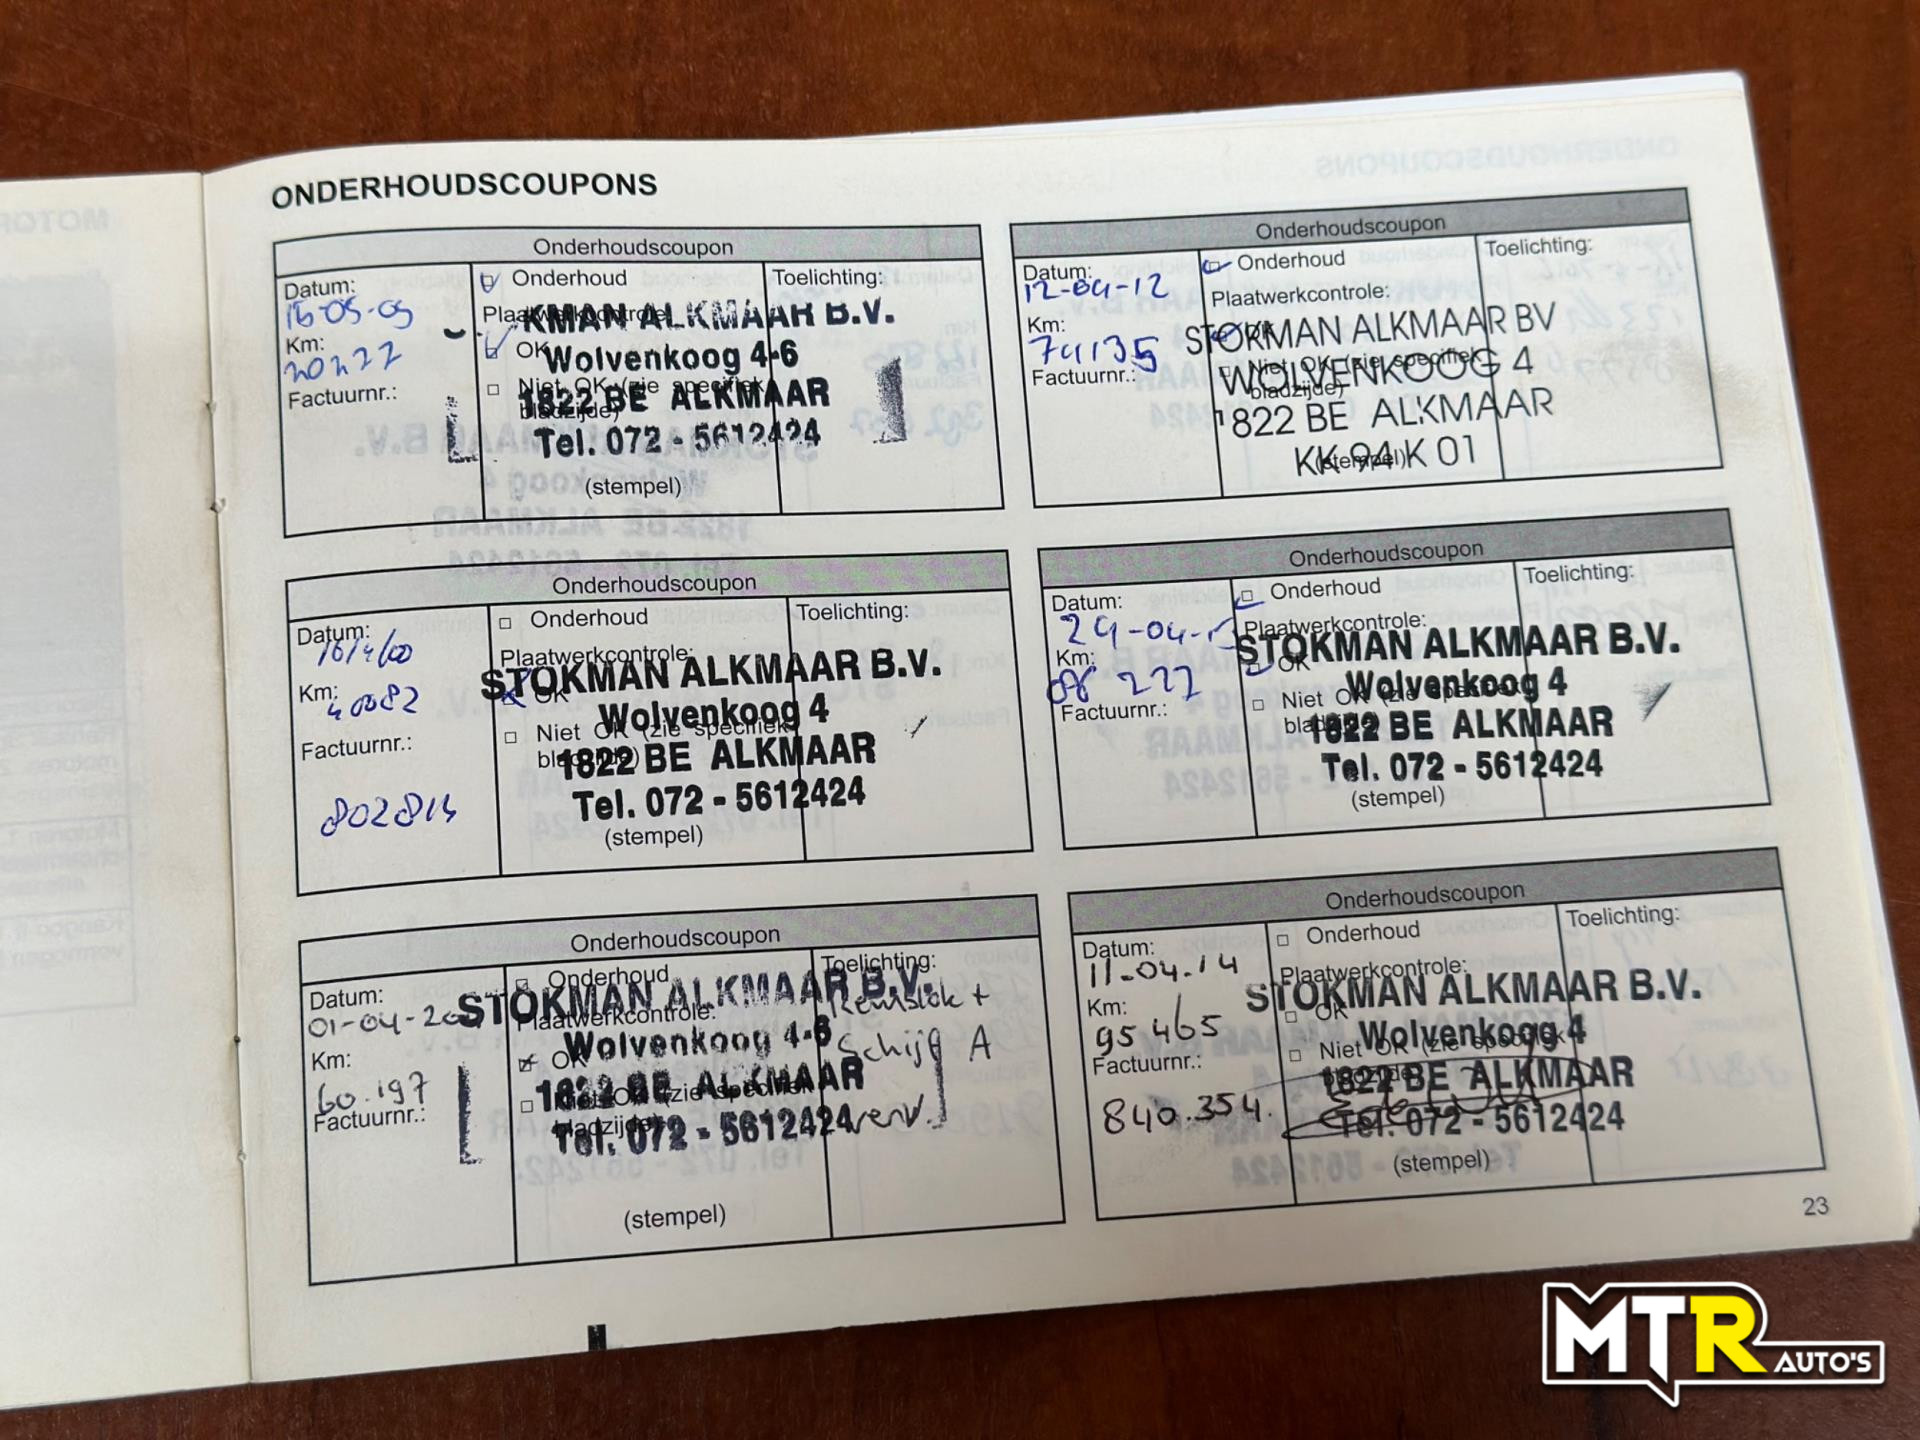 ONDERHOUDSCOUPONS
Onderhoudscoupon
Datum:
16-05-09
Km:
20227
Factuurnr.:
Onderhoud
Plaatwerkcontrole:
OK
Niet OK (zie specifiek
bladzijde)
KMAN ALKMAAR B.V.
Wolvenkoog 4-6
1822 BE ALKMAAR
Tel. 072 - 5612424
(stempel)
Toelichting:
Onderhoudscoupon
Datum:
Km:
40082
Factuurnr.:
Onderhoud
Plaatwerkcontrole:
OK
Niet OK (zie specifiek
bladzijde)
STOKMAN ALKMAAR B.V.
Wolvenkoog 4
1822 BE ALKMAAR
Tel. 072 - 5612424
(stempel)
Toelichting:
Onderhoudscoupon
Datum:
01-04-20
Km:
60.197
Factuurnr.:
Onderhoud
Plaatwerkcontrole:
OK
Niet OK (zie specifiek
bladzijde)
STOKMAN ALKMAAR B.V.
Wolvenkoog 4-6
1822 BE ALKMAAR
Tel. 072 - 5612424
(stempel)
Toelichting:
Remblok +
Schijf A
verv.
Onderhoudscoupon
Datum:
12-04-12
Km:
74135
Factuurnr.:
Onderhoud
Plaatwerkcontrole:
OK
Niet OK (zie specifiek
bladzijde)
STOKMAN ALKMAAR BV
WOLVENKOOG 4
1822 BE ALKMAAR
KK 94 K 01
(stempel)
Toelichting:
Onderhoudscoupon
Datum:
Km:
Factuurnr.:
Onderhoud
Plaatwerkcontrole:
OK
Niet OK (zie specifiek
bladzijde)
STOKMAN ALKMAAR B.V.
Wolvenkoog 4
1822 BE ALKMAAR
Tel. 072 - 5612424
(stempel)
Toelichting:
Onderhoudscoupon
Datum:
11-04-14
Km:
95465
Factuurnr.:
840.354.
Onderhoud
Plaatwerkcontrole:
OK
Niet OK (zie specifiek
bladzijde)
STOKMAN ALKMAAR B.V.
Wolvenkoog 4
1822 BE ALKMAAR
Tel. 072 - 5612424
(stempel)
Toelichting:
23
MTR AUTO'S